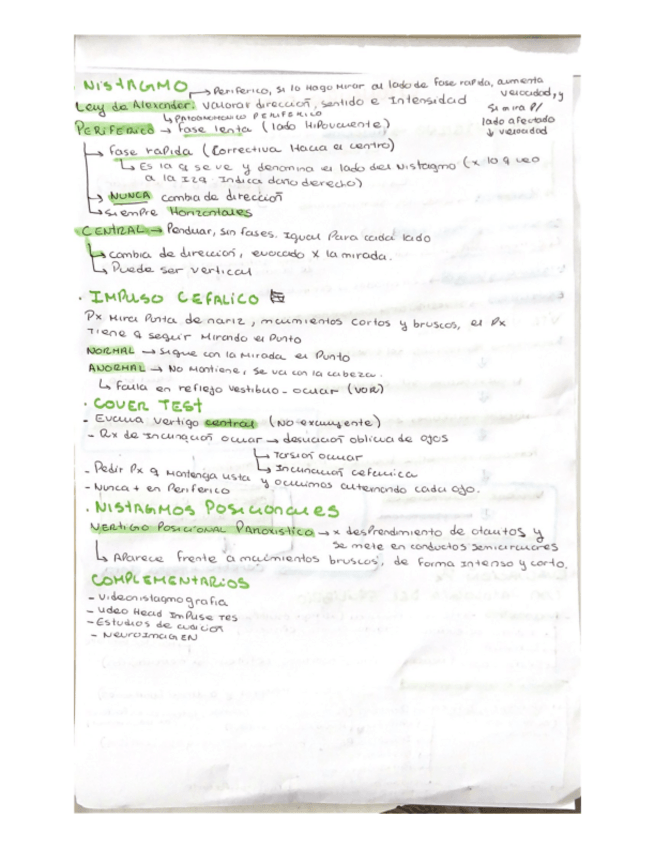 NISTAGMO
→ Periferico, si lo hago mirar al lado de fase rapida, aumenta velocidad, y si mira p/ lado afectado ↓ velocidad
Ley de Alexander: valorar dirección, sentido e Intensidad
↳ PATOGNOMONICO PERIFERICO
PERIFERICO → Fase lenta (lado Hipovalente)
→ Fase rapida (Correctiva Hacia el centro)
↳ Es la q se ve y denomina el lado del Nistagmo (x lo q veo
a la Izq. Indica daño derecho)
→ NUNCA cambia de dirección
→ siempre Horizontales
CENTRAL → Pendular, sin fases. Igual para cada lado
↳ cambia de dirección, evocado x la mirada.
↳ Puede ser vertical
· IMPULSO CEFALICO
Px Mira Punta de nariz, movimientos cortos y bruscos, el Px
Tiene q seguir Mirando el Punto
NORMAL → Sigue con la Mirada el Punto
ANORMAL → No Mantiene, se va con la cabeza.
↳ Falla en reflejo vestibulo-ocular (VOR)
· COVER TEST
- Evalua vertigo central (No excluyente)
- Rx de Inclinación ocular → desviación oblicua de ojos
↳ Torsión ocular
↳ Inclinación cefalica
- Pedir Px q Mantenga vista y ocluimos alternando cada ojo.
- Nunca + en Periferico
· NISTAGMOS POSICIONALES
VERTIGIO POSICIONAL PAROXISTICO → x desprendimiento de otolitos y
se mete en conductos semicirculares
↳ Aparece frente a movimientos bruscos, de forma Intensa y corta.
COMPLEMENTARIOS
- Videonistagmografia
- Video Head Impulse Tes
- Estudios de audición
- NeuroImagEN